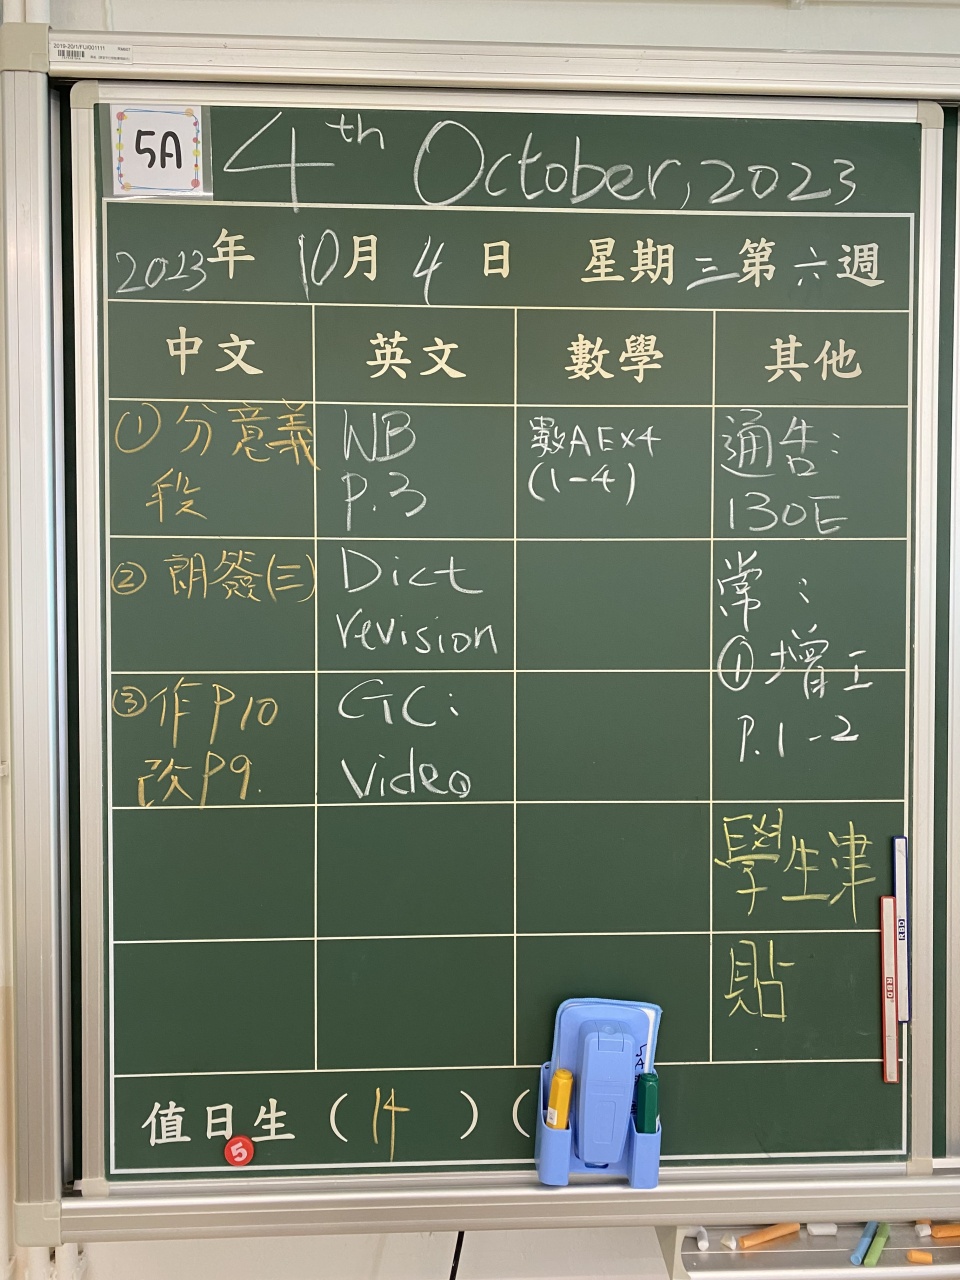 2019-20/1/FU/001111
5A
4th October, 2023
2023年 10月 4日 星期三第六週
中文 英文 數學 其他
①分意義
段
②朗簽(三)
③作P10
改P9.
WB
p.3
Dict
revision
GC:
Video
數AEx4
(1-4)
通告:
130E
常:
①增工
P.1-2
學生津
貼
值日生 (14 ) (
5
RBD
RBD